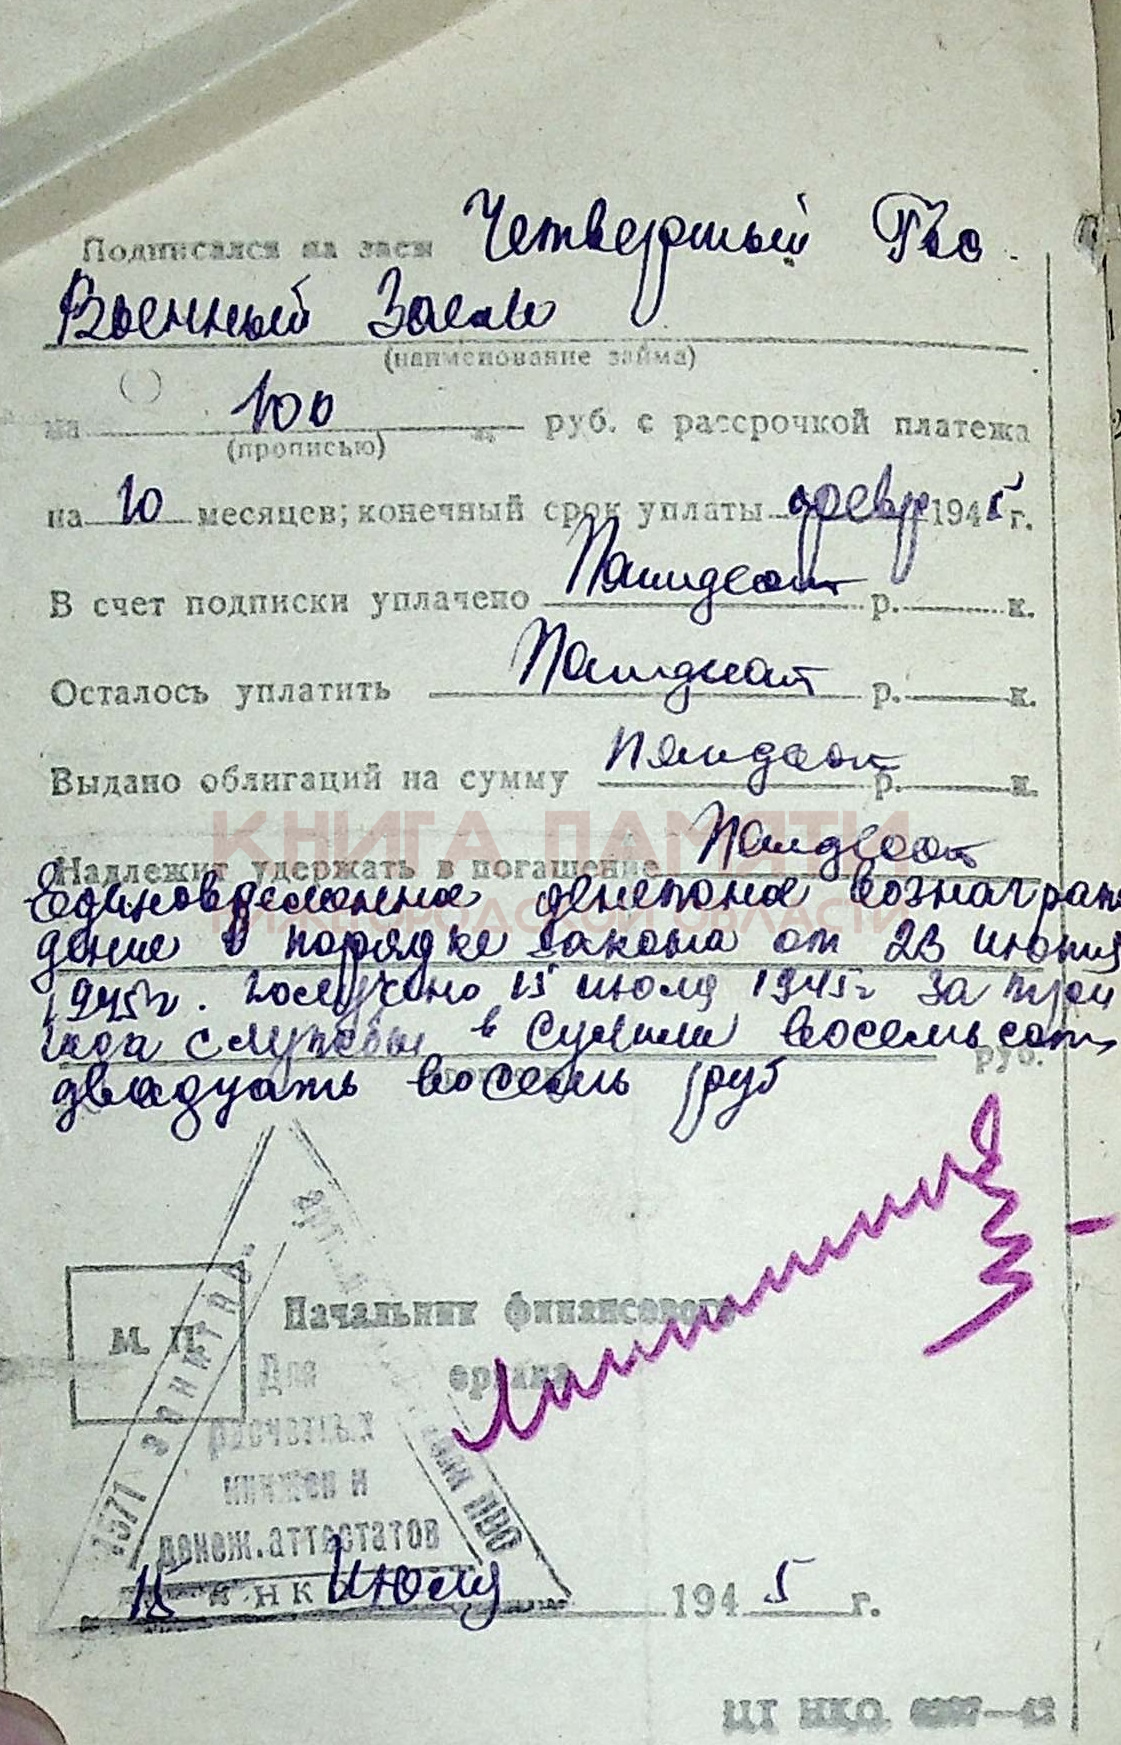 Подписался на заем Четвертый Гос.
Военный Заем
(наименование займа)
на 100 руб. с рассрочкой платежа
(прописью)
на 10 месяцев; конечный срок уплаты февр 1945 г.
В счет подписки уплачено р. к.
Осталось уплатить р. к.
Выдано облигаций на сумму р. к.
КНИГА ПАМЯТИ
Надлежит удержать в погашение
НИЖЕГОРОДСКОЙ ОБЛАСТИ
Единовременное денежное вознаграж
дение в порядке закона от 23 июня
1945г. получено 15 июля 1945г За три
года службы в сумме восемьсот
руб.
двадцать восемь руб
М. П.
Начальник финансового
органа
1571 ЗЕНИТН.
АРТ.
ПВО
Для
расчетных
книжек и
денеж. аттестатов
НК
15 Июля 1945 г.
ЦТ НКО